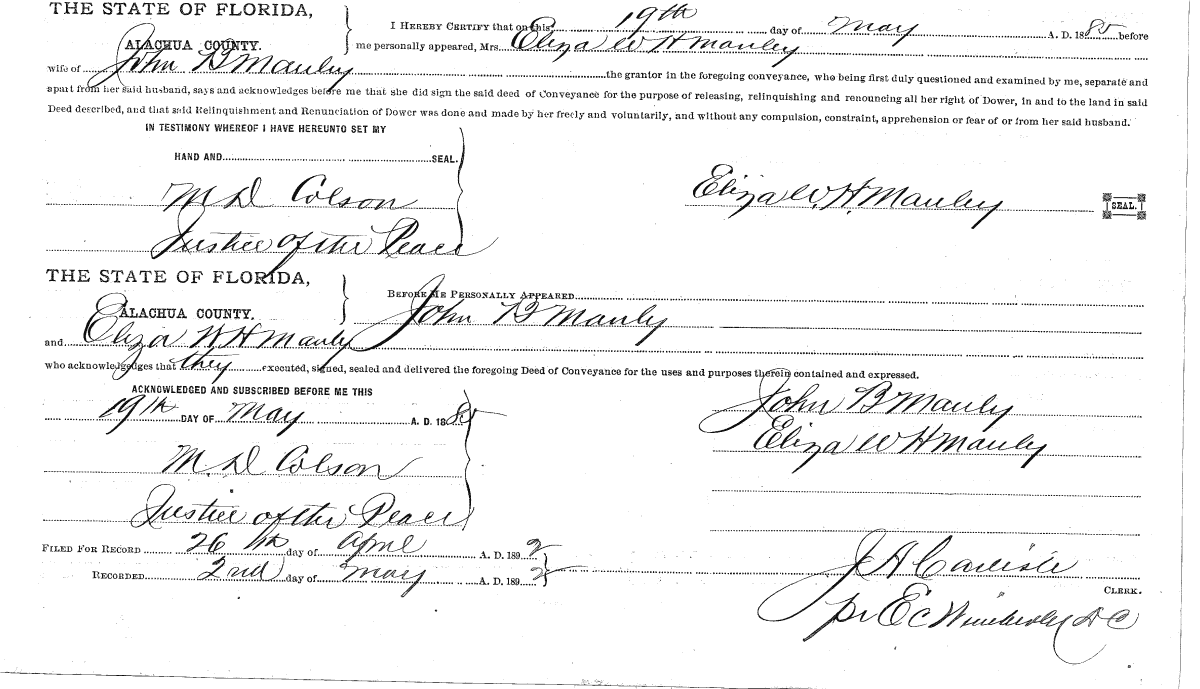 THE STATE OF FLORIDA,
ALACHUA COUNTY.
I HEREBY CERTIFY that on this 19th day of May A. D. 1885 before
me personally appeared, Mrs. Eliza W H Manley
wife of John B Manley the grantor in the foregoing conveyance, who being first duly questioned and examined by me, separate and
apart from her said husband, says and acknowledges before me that she did sign the said deed of Conveyance for the purpose of releasing, relinquishing and renouncing all her right of Dower, in and to the land in said
Deed described, and that said Relinquishment and Renunciation of Dower was done and made by her freely and voluntarily, and without any compulsion, constraint, apprehension or fear of or from her said husband.
IN TESTIMONY WHEREOF I HAVE HEREUNTO SET MY
HAND AND SEAL.
M D Colson
Justice of the Peace
Eliza W. H. Manley
SEAL.
THE STATE OF FLORIDA,
ALACHUA COUNTY.
BEFORE ME PERSONALLY APPEARED
John B Manly
and Eliza W H Manly
who acknowledges that they executed, signed, sealed and delivered the foregoing Deed of Conveyance for the uses and purposes therein contained and expressed.
ACKNOWLEDGED AND SUBSCRIBED BEFORE ME THIS
19th DAY OF May A. D. 1885
M. D Colson
Justice of the Peace
John B Manly
Eliza W H Manly
FILED FOR RECORD 26th day of April A. D. 1892
RECORDED 2nd day of May A. D. 1892
J A Carlisle
CLERK.
pr E C Wimberley D C